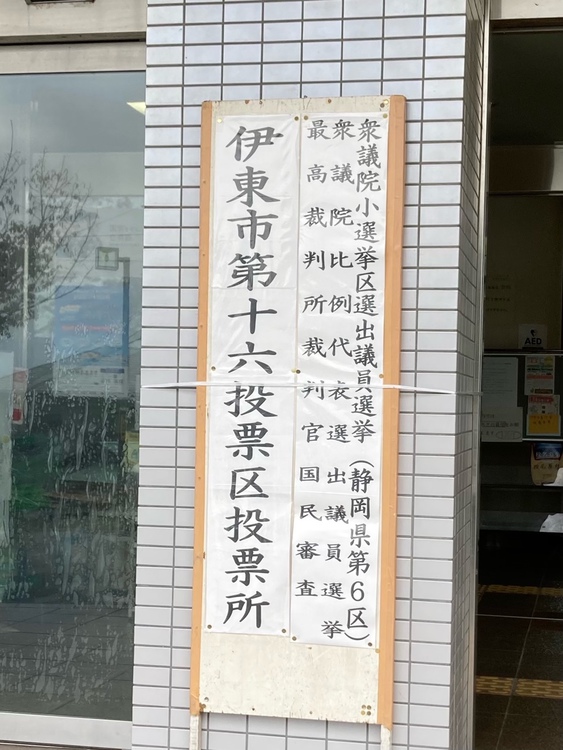 衆議院小選挙区選出議員選挙（静岡県第6区）
衆議院比例代表選出議員選挙
最高裁判所裁判官国民審査
伊東市第十六投票区投票所
AED